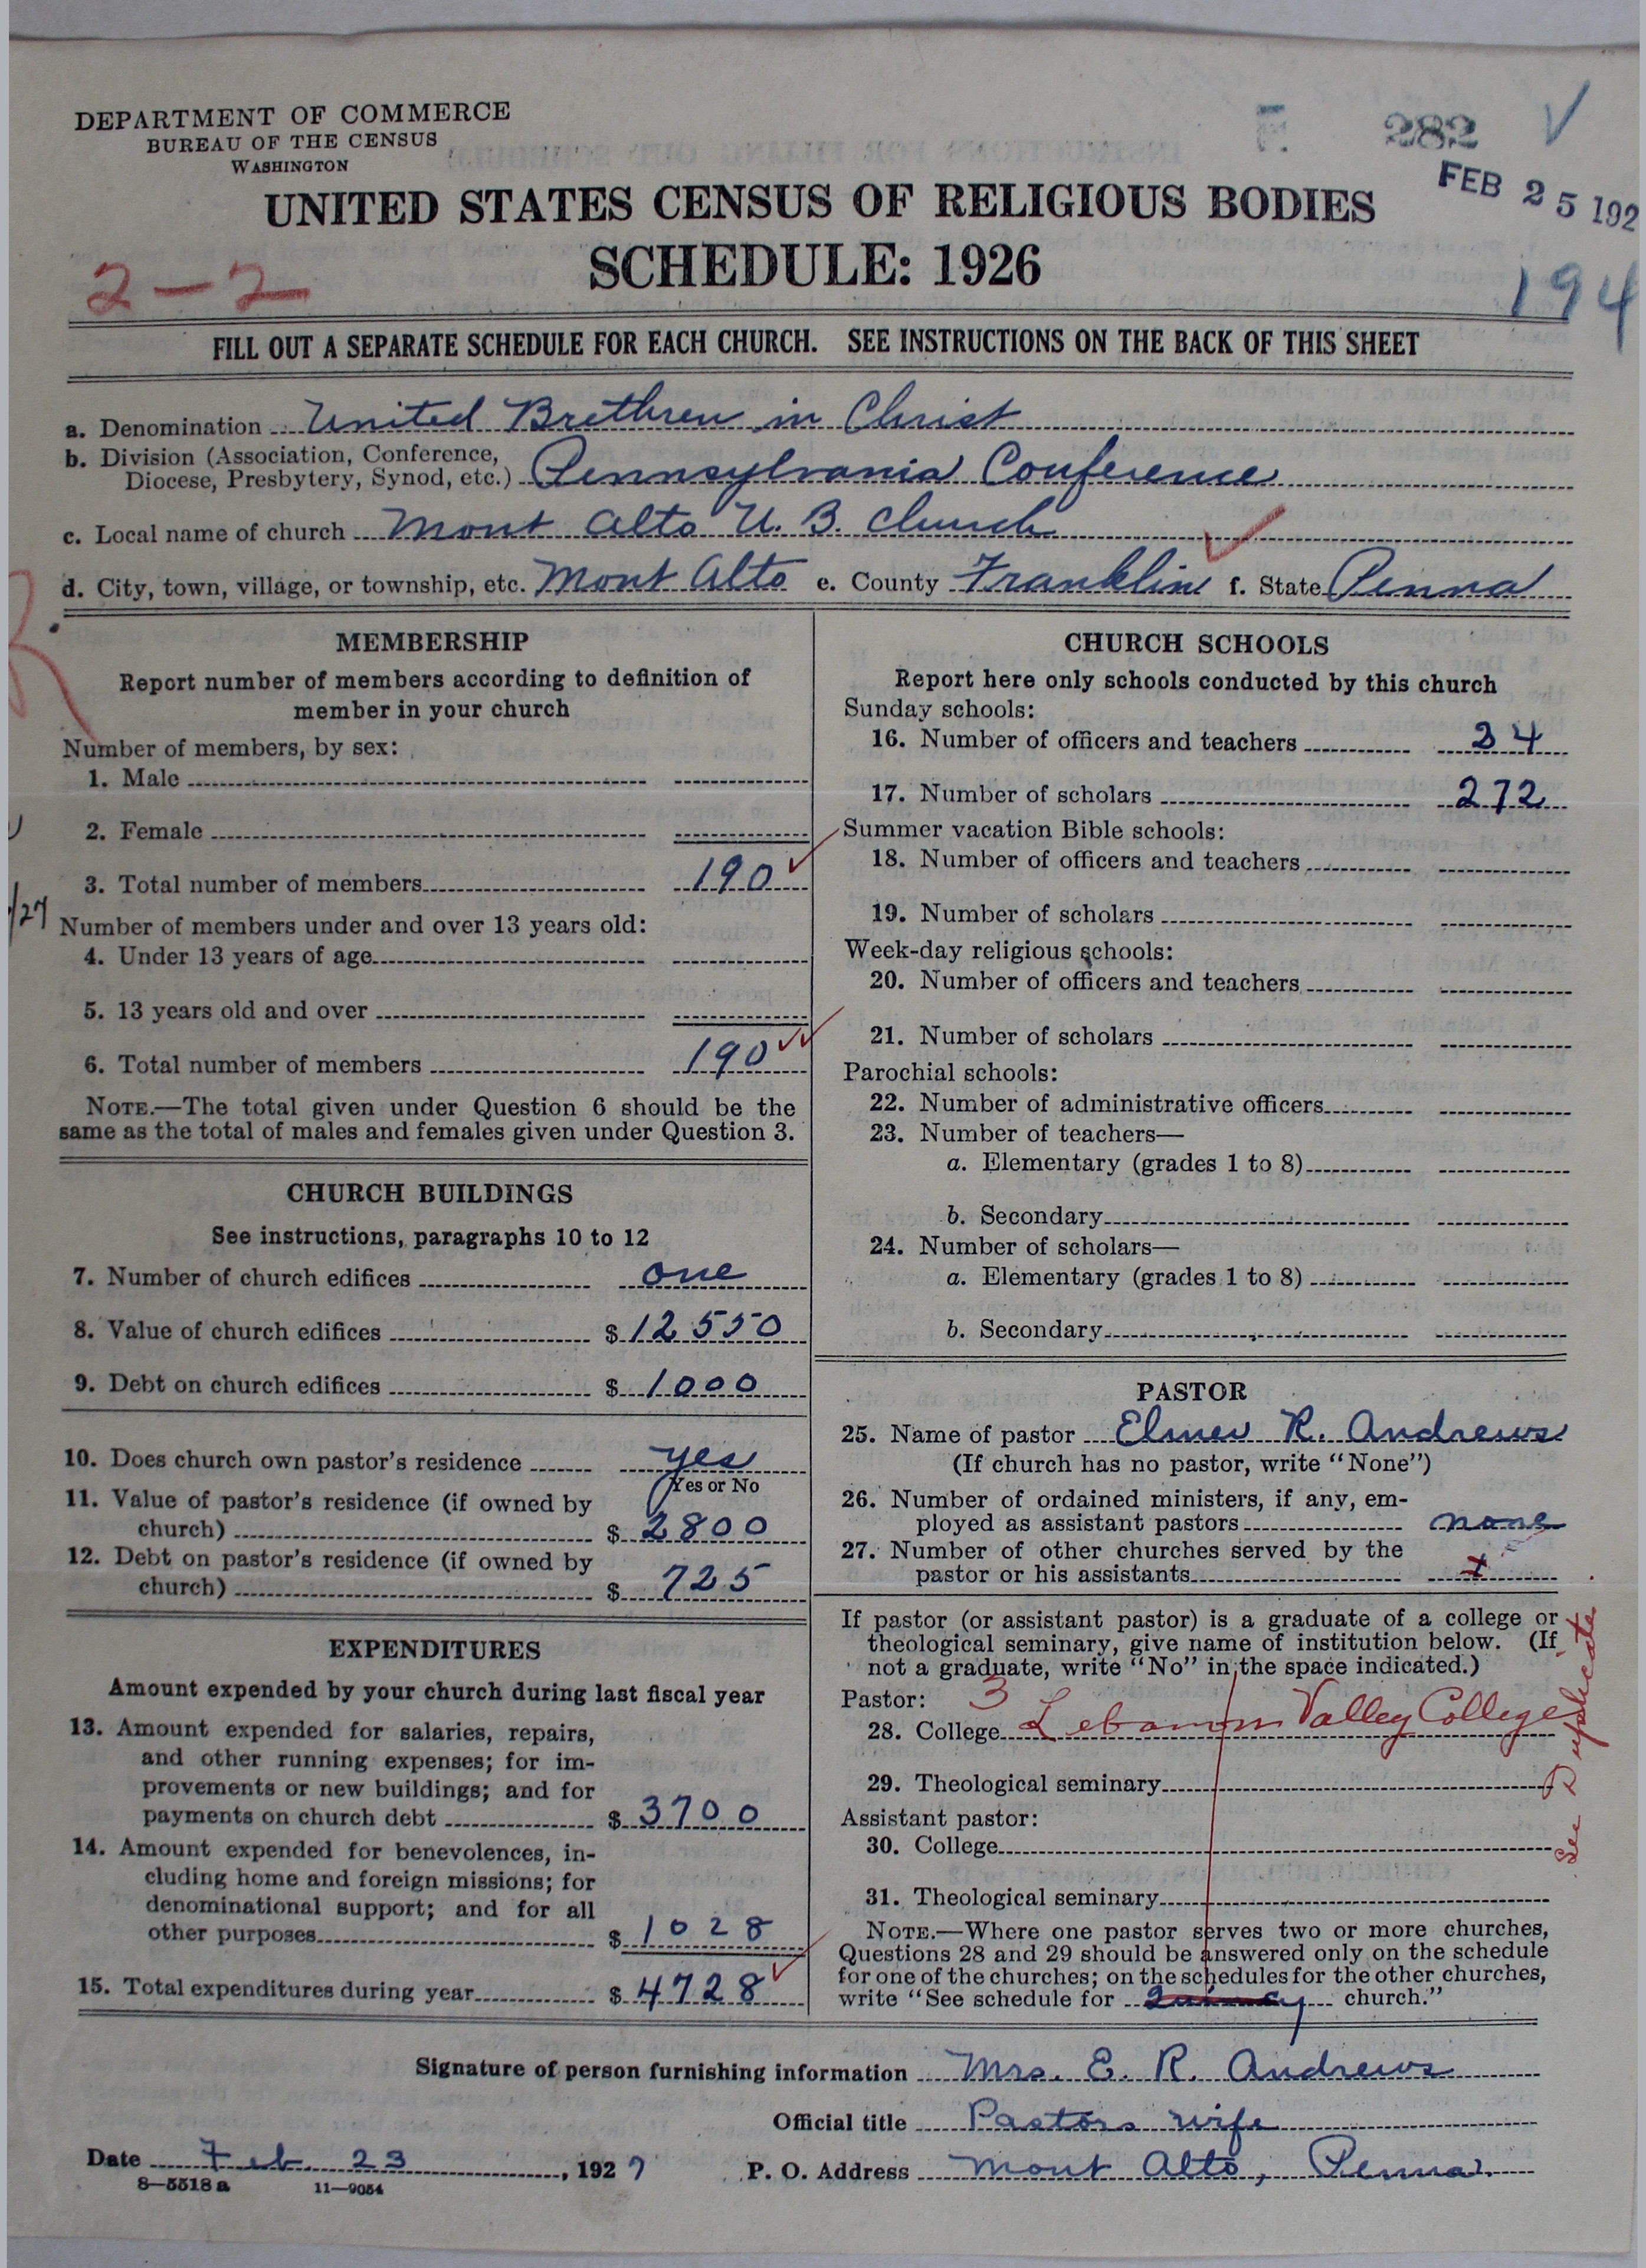 DEPARTMENT OF COMMERCE
BUREAU OF THE CENSUS
WASHINGTON
282
FEB 25 192
UNITED STATES CENSUS OF RELIGIOUS BODIES
SCHEDULE: 1926
2-2
194
FILL OUT A SEPARATE SCHEDULE FOR EACH CHURCH. SEE INSTRUCTIONS ON THE BACK OF THIS SHEET
a. Denomination United Brethren in Christ
b. Division (Association, Conference, Diocese, Presbytery, Synod, etc.) Pennsylvania Conference
c. Local name of church Mont Alto U. B. Church
d. City, town, village, or township, etc. Mont Alto e. County Franklin f. State Penna
MEMBERSHIP
Report number of members according to definition of
member in your church
Number of members, by sex:
1. Male
2. Female
3. Total number of members 190
/27
Number of members under and over 13 years old:
4. Under 13 years of age
5. 13 years old and over
6. Total number of members 190
NOTE.—The total given under Question 6 should be the
same as the total of males and females given under Question 3.
CHURCH BUILDINGS
See instructions, paragraphs 10 to 12
7. Number of church edifices one
8. Value of church edifices $ 12550
9. Debt on church edifices $ 1000
10. Does church own pastor's residence yes
Yes or No
11. Value of pastor's residence (if owned by
church) $ 2800
12. Debt on pastor's residence (if owned by
church) $ 725
EXPENDITURES
Amount expended by your church during last fiscal year
13. Amount expended for salaries, repairs,
and other running expenses; for im-
provements or new buildings; and for
payments on church debt $ 3700
14. Amount expended for benevolences, in-
cluding home and foreign missions; for
denominational support; and for all
other purposes $ 1028
15. Total expenditures during year $ 4728
CHURCH SCHOOLS
Report here only schools conducted by this church
Sunday schools:
16. Number of officers and teachers 34
17. Number of scholars 272
Summer vacation Bible schools:
18. Number of officers and teachers
19. Number of scholars
Week-day religious schools:
20. Number of officers and teachers
21. Number of scholars
Parochial schools:
22. Number of administrative officers
23. Number of teachers—
a. Elementary (grades 1 to 8)
b. Secondary
24. Number of scholars—
a. Elementary (grades 1 to 8)
b. Secondary
PASTOR
25. Name of pastor Elmer R. Andrews
(If church has no pastor, write "None")
26. Number of ordained ministers, if any, em-
ployed as assistant pastors none
27. Number of other churches served by the
pastor or his assistants
If pastor (or assistant pastor) is a graduate of a college or
theological seminary, give name of institution below. (If
not a graduate, write "No" in the space indicated.)
Pastor: 3
28. College Lebanon Valley College
29. Theological seminary
See Duplicate
Assistant pastor:
30. College
31. Theological seminary
NOTE.—Where one pastor serves two or more churches,
Questions 28 and 29 should be answered only on the schedule
for one of the churches; on the schedules for the other churches,
write "See schedule for Quincy church."
Signature of person furnishing information Mrs. E. R. Andrews
Official title Pastors wife
Date Feb. 23, 1927 P. O. Address Mont Alto, Penna.
8—5518 a 11—9054